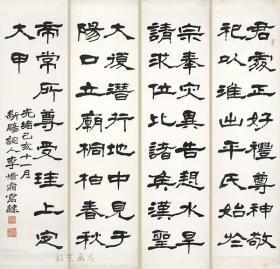 君處正好禮尊神敬
祀以淮出平氏始於
宗奉水旱
請求位比諸矦聖漢
大復潛行地中見于
陽口立廟桐柏春秋
帝常所尊受珪上定
大甲
光緒己亥十一月
詞人李